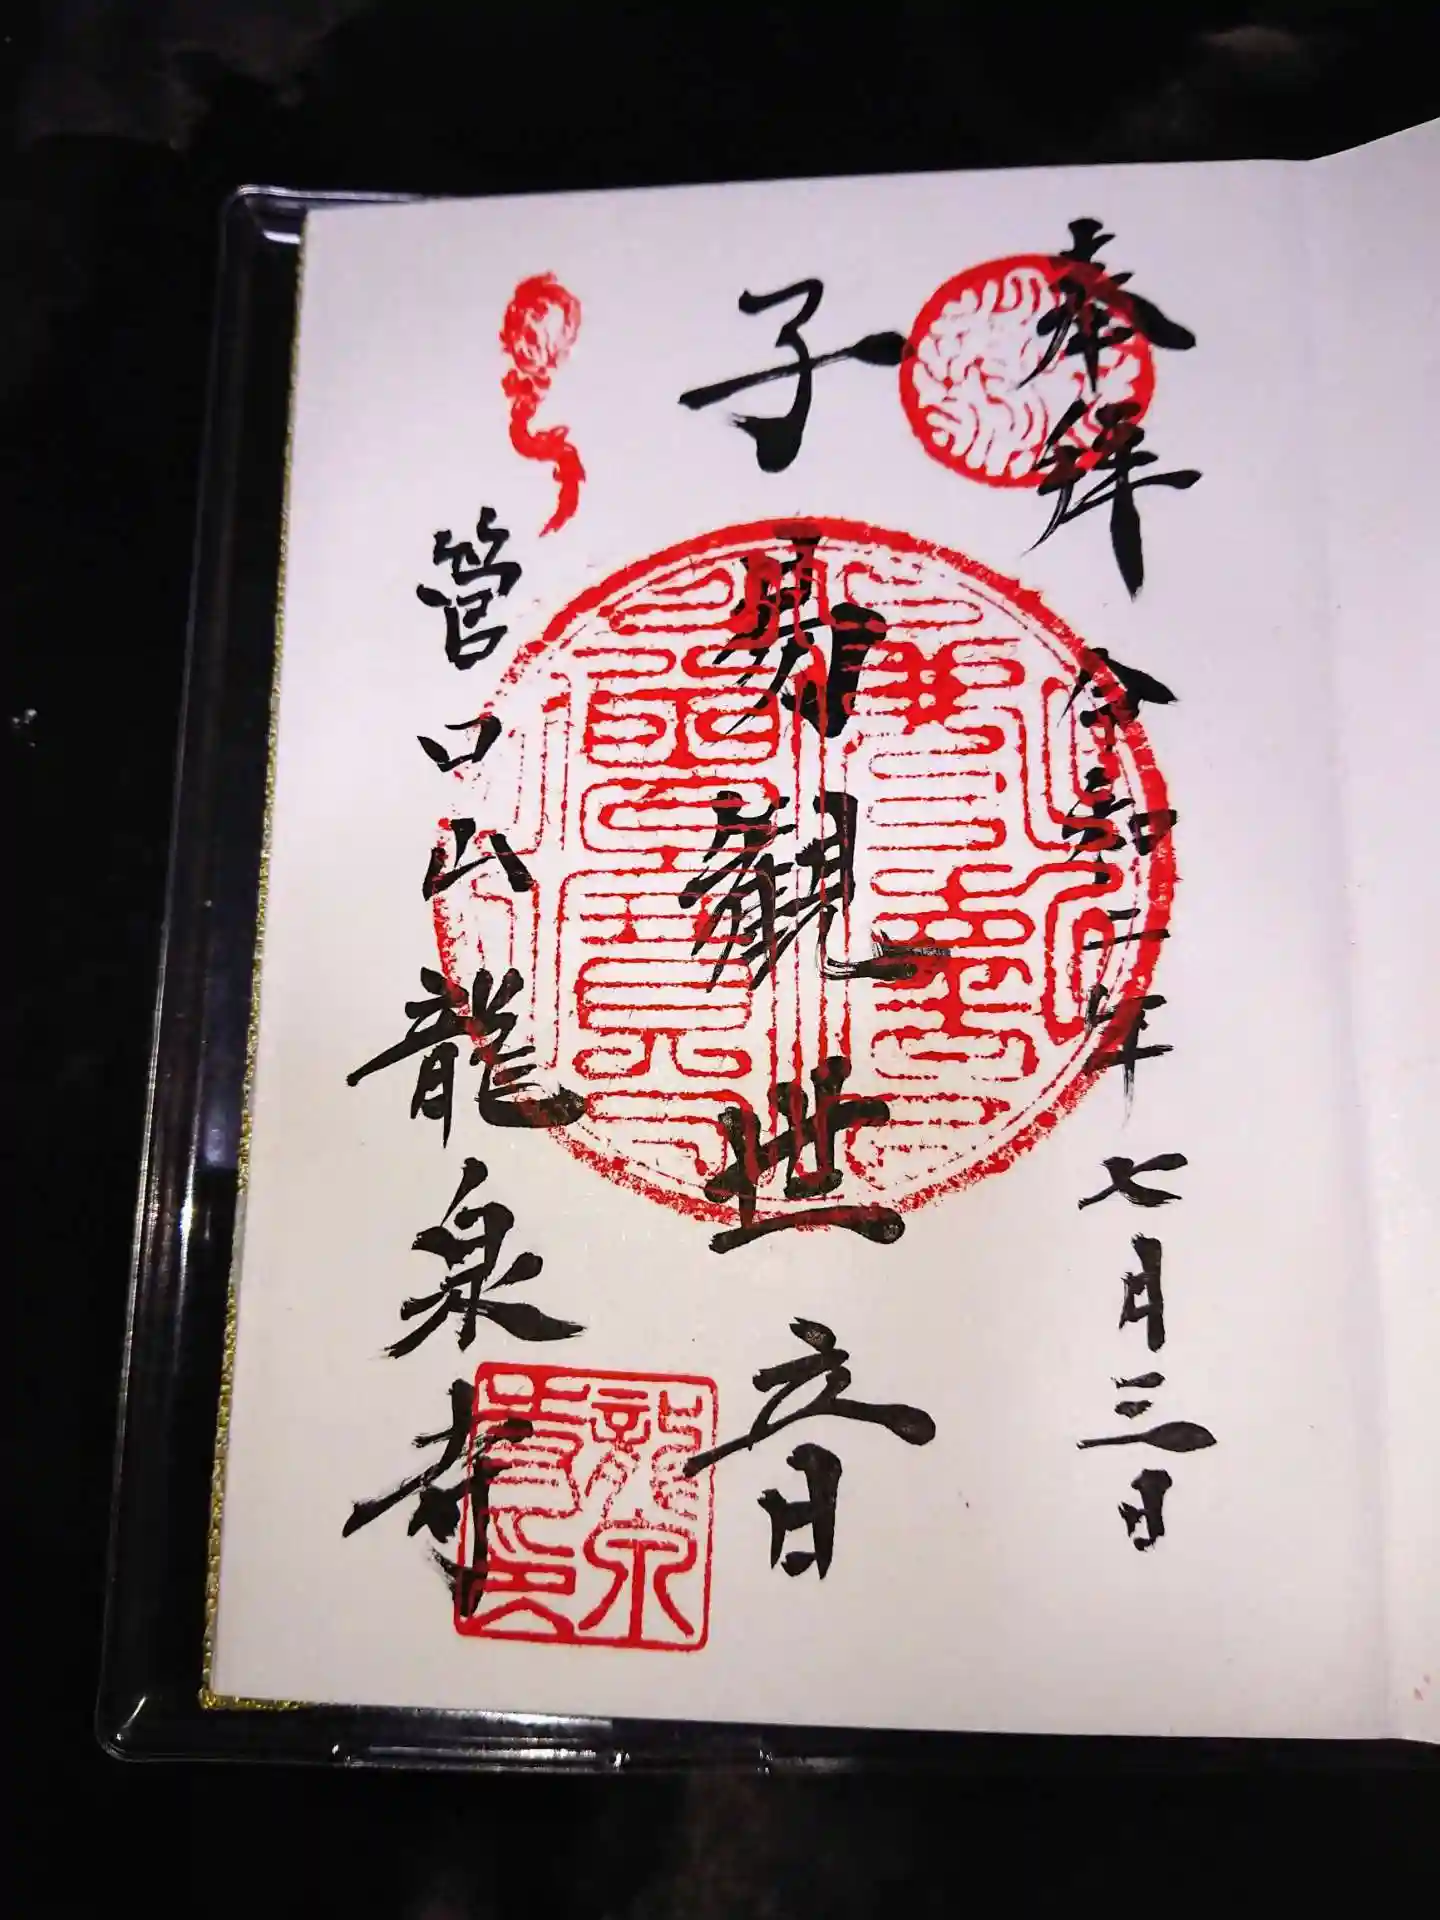 奉拝 令和二年七月三日
子易觀世音
管口山 龍泉寺
龍泉寺印